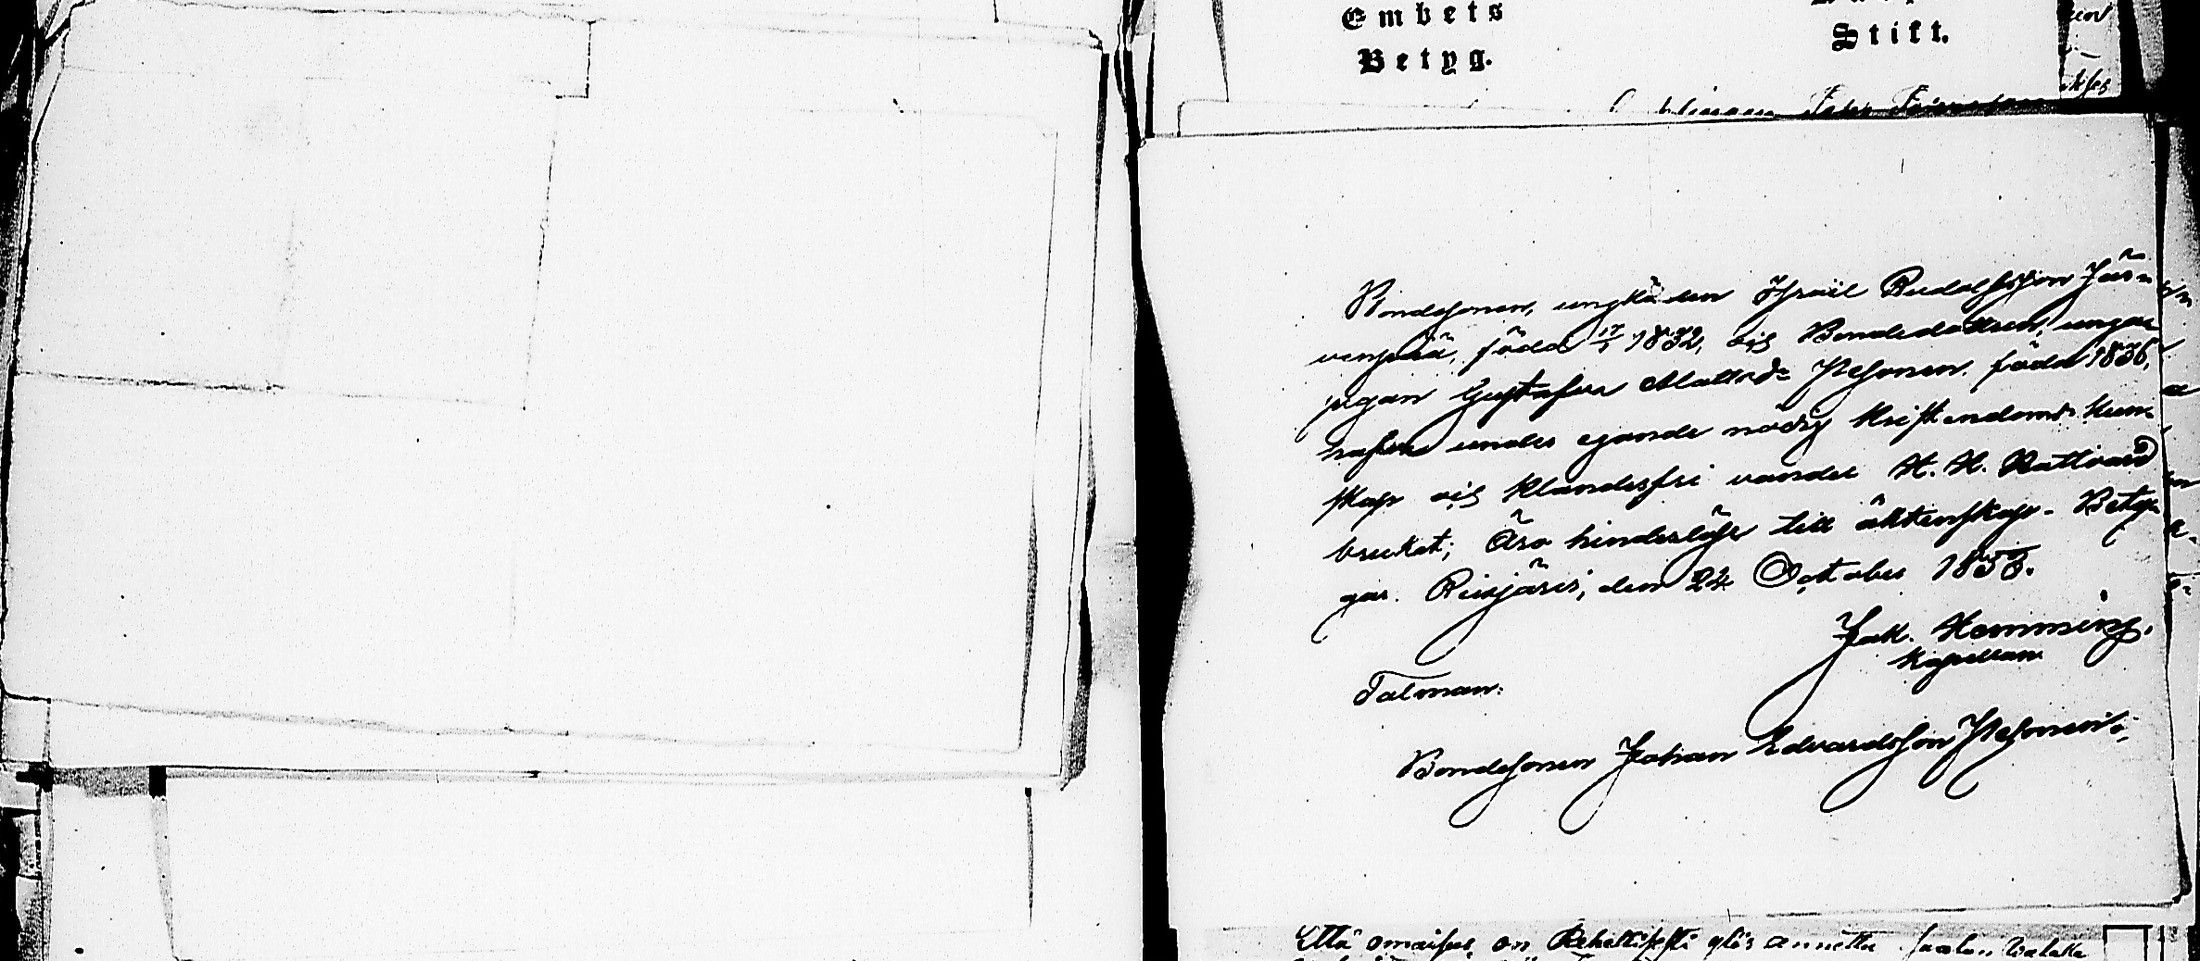 Embets
Betyg.
Stift.
Bondesonen, ungkarlen Israël Rudolfsson Jär-
venpää, född 17/1 1832, och Bondedottren, unga
pigan Gustafva Mattsdr Itesonen född 1836,
hafva under egande nödig kristendoms kun-
skap och klanderfri vandel H. H. Nattvard
brukat; Äro hinderlöse till äktenskap. Bety-
gar. Reisjärvi, den 24 October 1858.
Jak. Hemming.
Kapellan
Talman:
Bondesonen Johan Edvardsson Itesonen
Että omaiset on Rehellisesti ylös annettu